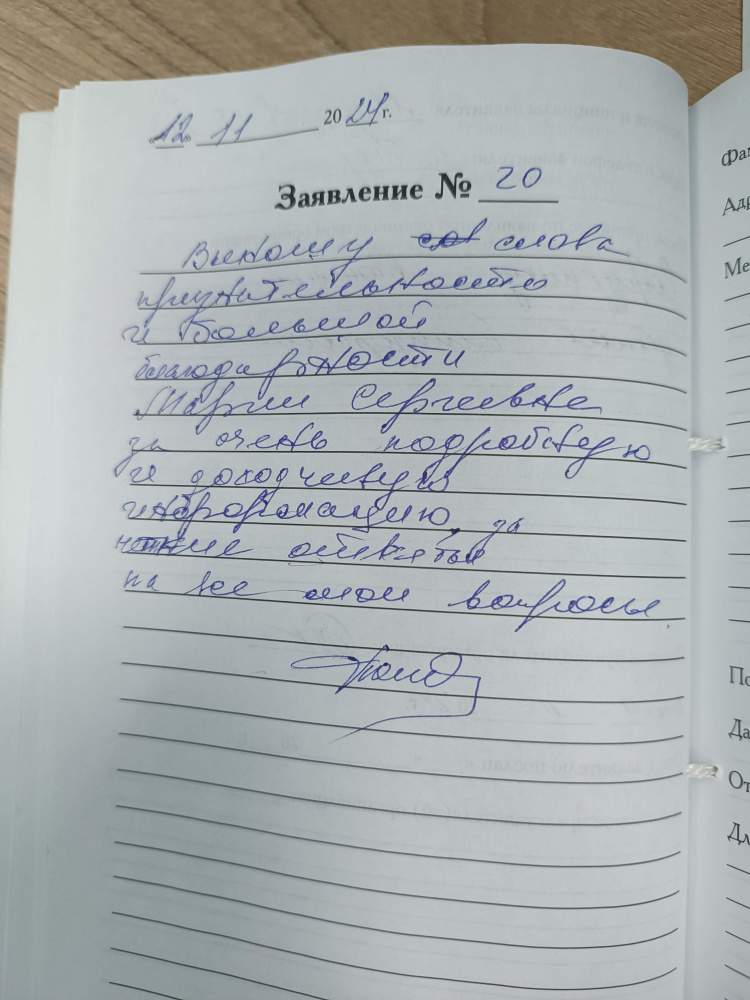 12 11 2024 г.
Заявление № 20
Выношу слова
признательности
и большой
благодарности
Марии Сергеевне
за очень подробную
и доходчивую
информацию, за
четкие ответы
на все мои вопросы
Фам
Адр
Ме
По
Да
От
Дл